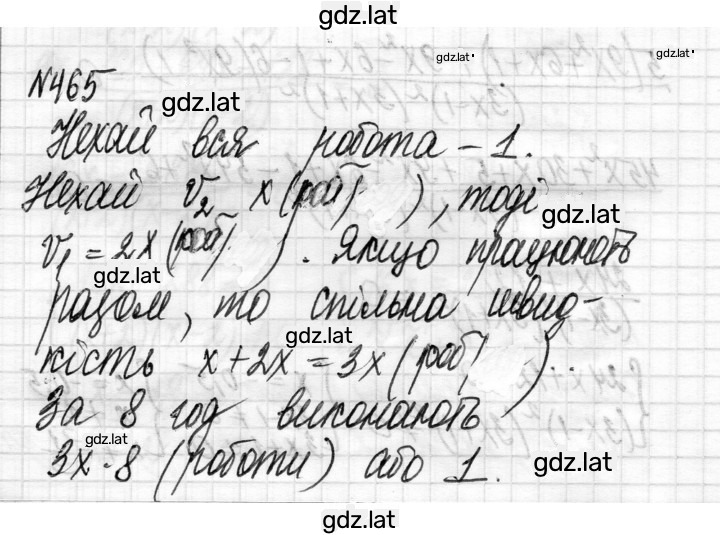 gdz.lat
gdz.lat
№465
gdz.lat
Нехай вся робота – 1.
Нехай v₂ x (роб ), тоді
gdz.lat
v₁ = 2x (роб ). Якщо працюють
gdz.lat
разом, то спільна швид-
gdz.lat
кість x + 2x = 3x (роб ).
За 8 год виконають
gdz.lat
3x · 8 (роботи) або 1.
gdz.lat
gdz.lat